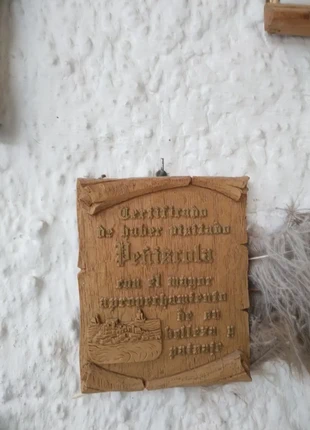 Certificado
de haber visitado
Peñiscola
con el mayor
aprovechamiento
de su
belleza y
paisaje